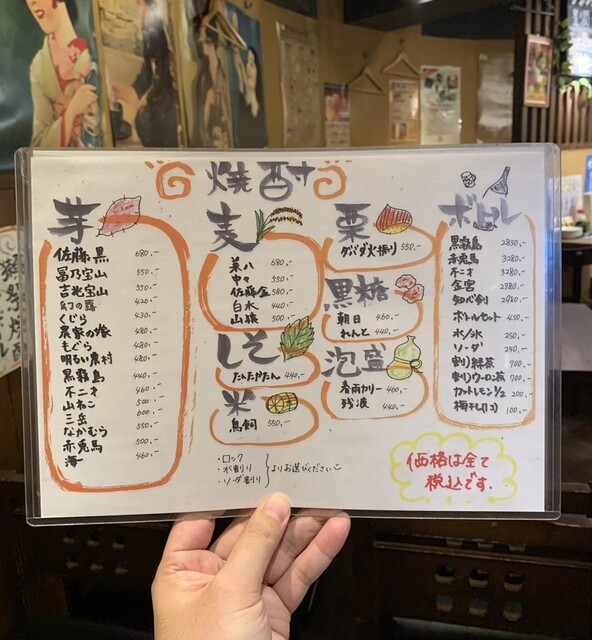 焼酎
芋
佐藤 黒 680.-
冨乃宝山 550.-
吉兆宝山 550.-
幻の露 430.-
くじら 430.-
農家の嫁 480.-
もぐら 480.-
明るい農村 480.-
黒霧島 440.-
不二才 460.-
山ねこ 500.-
三岳 550.-
なかむら 550.-
赤兎馬 500.-
海 460.-
麦
兼八 680.-
中々 550.-
佐藤 麦 580.-
白水 440.-
山猿 500.-
しそ
たんたかたん 440.-
米
鳥飼 550.-
栗
ダバダ火振り 550.-
黒糖
朝日 460.-
れんと 440.-
泡盛
春雨カリー 460.-
残波 440.-
ボトル
黒霧島 2850.-
赤兎馬 3280.-
不二才 3280.-
金宮 2980.-
知心剣 2980.-
ボトルセット 450.-
水/氷 250.-
ソーダ 250.-
割り緑茶 700.-
割りウーロン茶 700.-
カットレモン1/2 200.-
梅干し(1コ) 100.-
・ロック
・水割り
・ソーダ割り
よりお選びください
価格は全て
税込です。